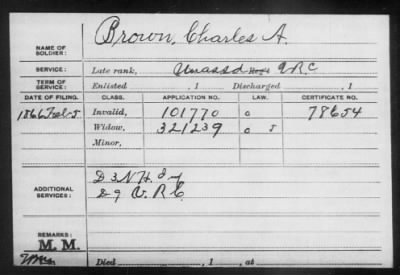 Brown, Charles A.
NAME OF SOLDIER:
SERVICE: Late rank, Unassd Reg't V.R.C
TERM OF SERVICE: Enlisted , 1 Discharged , 1
DATE OF FILING. CLASS. APPLICATION NO. LAW. CERTIFICATE NO.
1866 Feb 5 Invalid, 101770 c 78654
Widow, 321239 c J
Minor,
ADDITIONAL SERVICES: D 3 N.H. Inf
D 9 V.R.C.
REMARKS: M. M.
Died , 1 , at